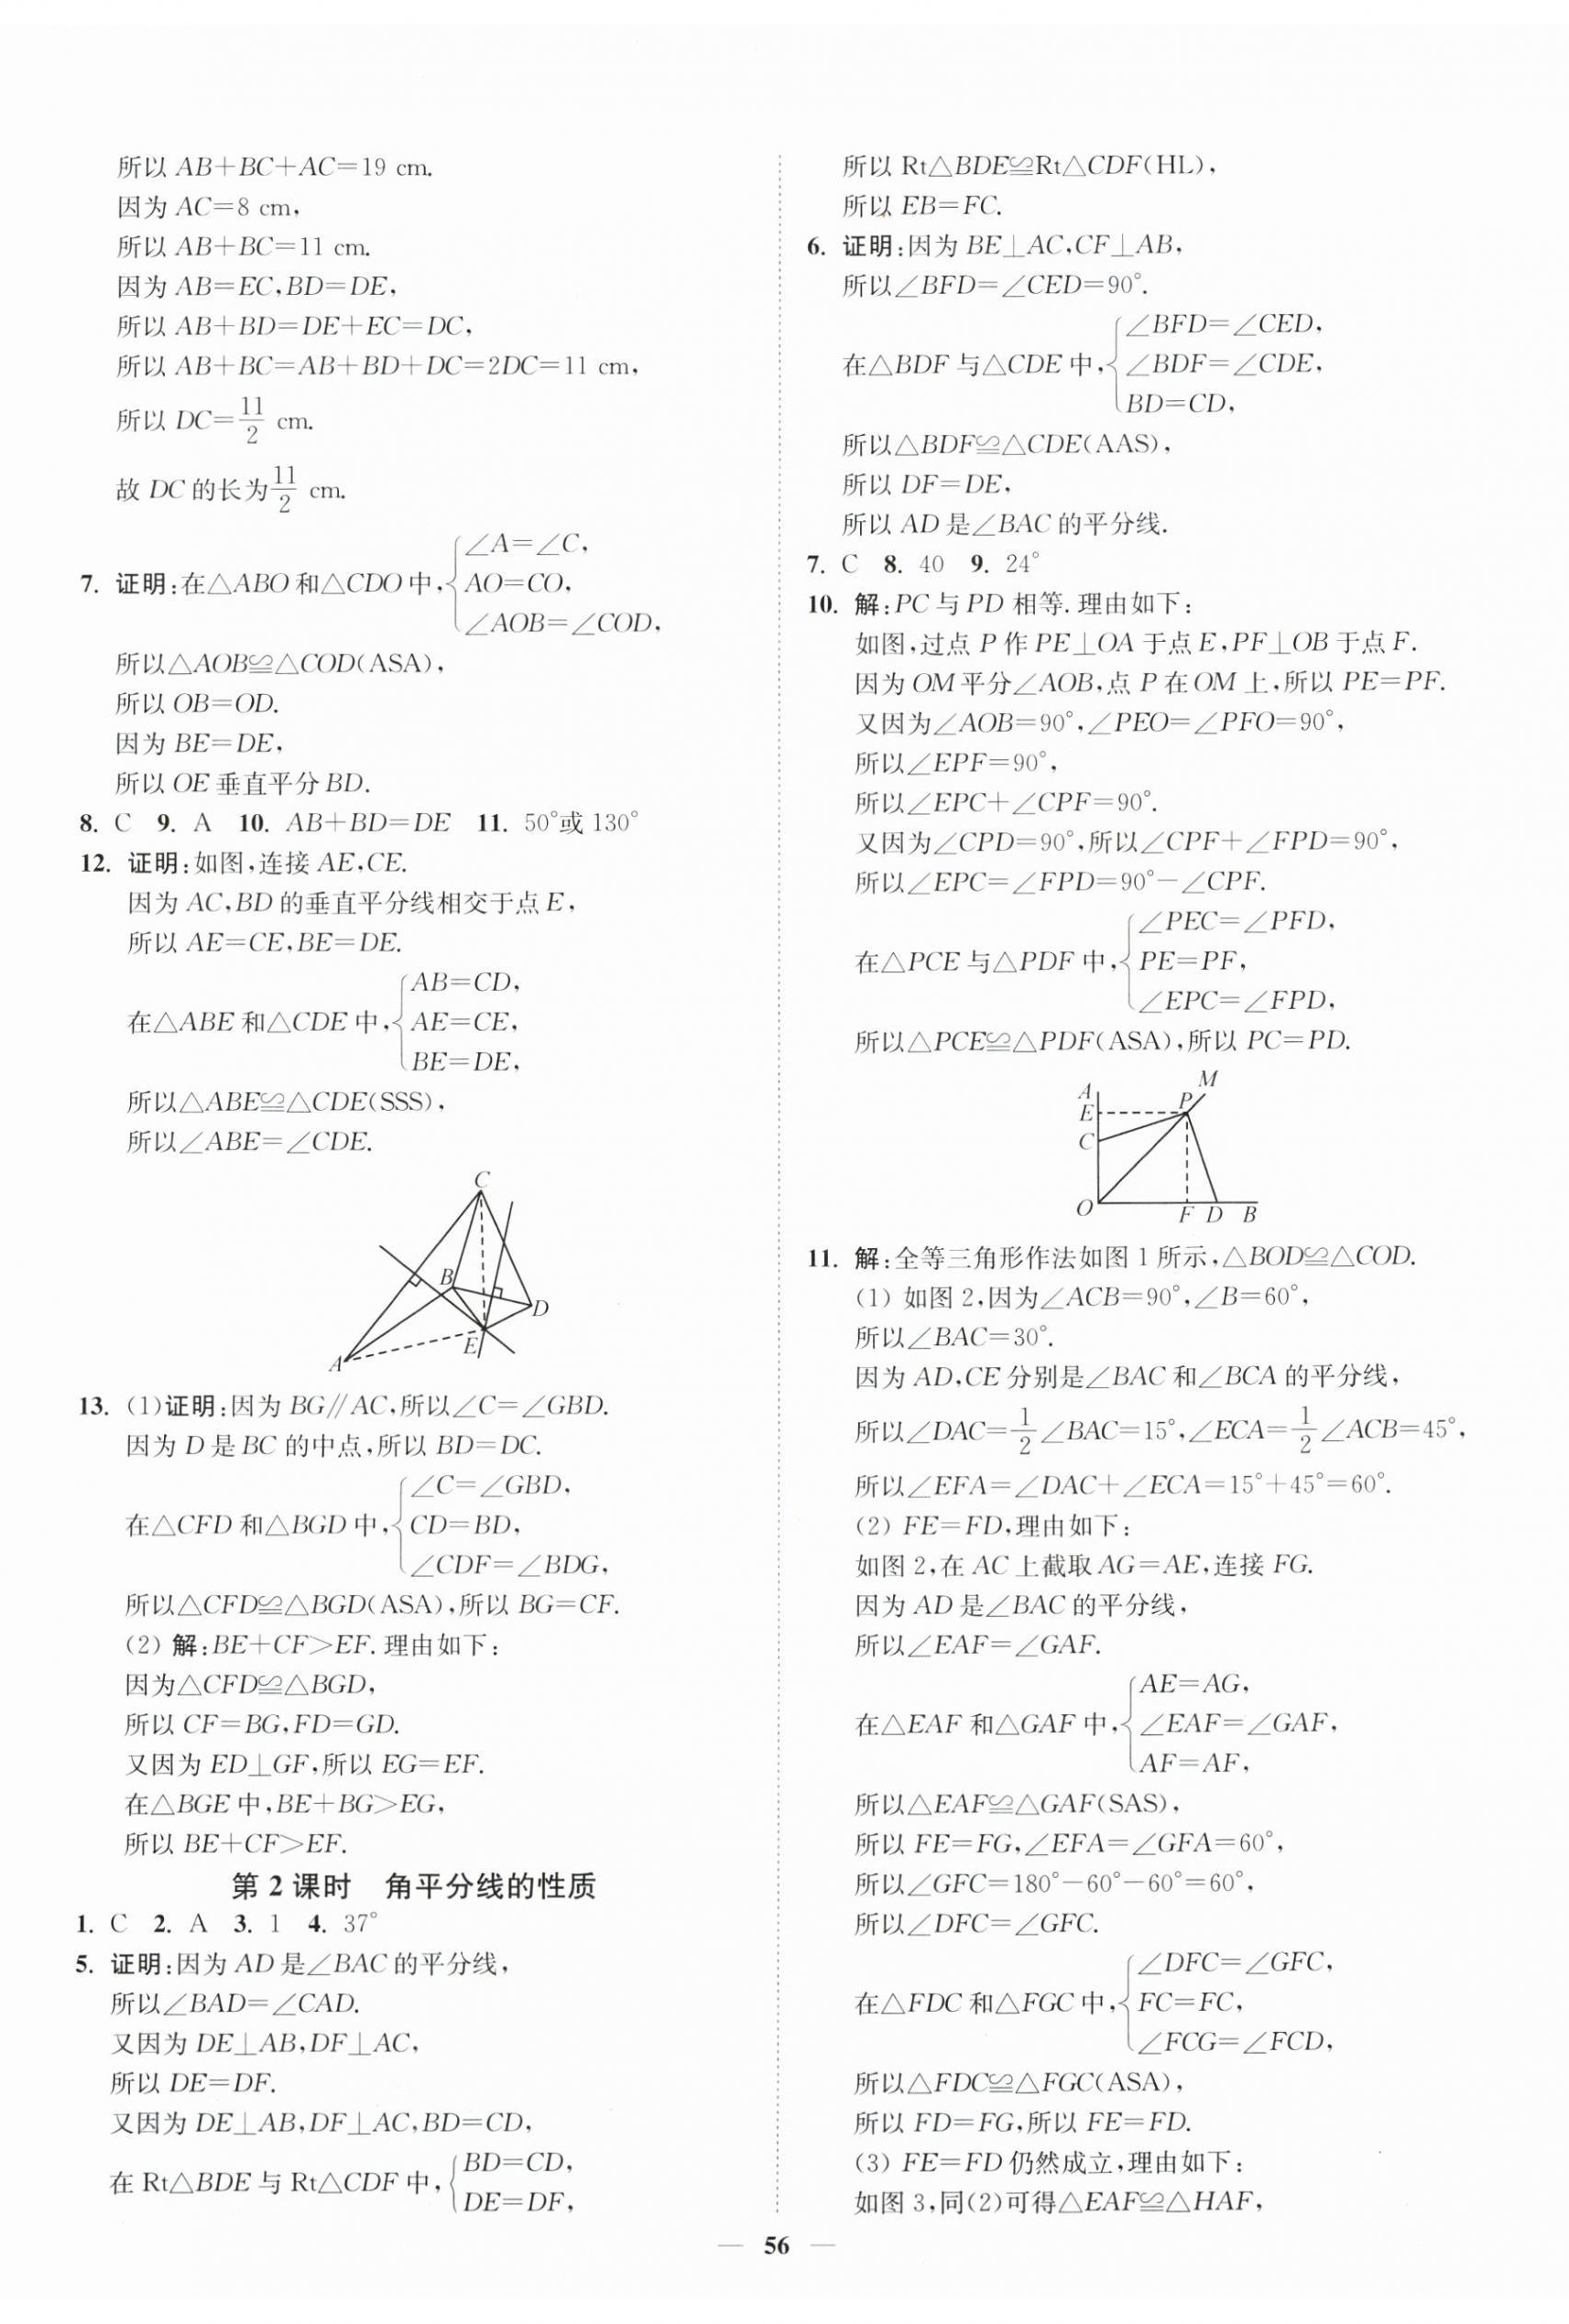 所以 AB+BC+AC=19 cm.
因为 AC=8 cm,
所以 AB+BC=11 cm.
因为 AB=EC,BD=DE,
所以 AB+BD=DE+EC=DC,
所以 AB+BC=AB+BD+DC=2DC=11 cm,
所以 DC=11/2 cm.
故 DC 的长为 11/2 cm.
∠A=∠C,
7. 证明:在△ABO 和△CDO 中,{AO=CO,
∠AOB=∠COD,
所以△AOB≌△COD(ASA),
所以 OB=OD.
因为 BE=DE,
所以 OE 垂直平分 BD.
8. C 9. A 10. AB+BD=DE 11. 50°或 130°
12. 证明:如图,连接 AE,CE.
因为 AC,BD 的垂直平分线相交于点 E,
所以 AE=CE,BE=DE.
AB=CD,
在△ABE 和△CDE 中,{AE=CE,
BE=DE,
所以△ABE≌△CDE(SSS),
所以∠ABE=∠CDE.
C
B
D
E
A
13. (1)证明:因为 BG∥AC,所以∠C=∠GBD.
因为 D 是 BC 的中点,所以 BD=DC.
∠C=∠GBD,
在△CFD 和△BGD 中,{CD=BD,
∠CDF=∠BDG,
所以△CFD≌△BGD(ASA),所以 BG=CF.
(2) 解:BE+CF>EF. 理由如下:
因为△CFD≌△BGD,
所以 CF=BG,FD=GD.
又因为 ED⊥GF,所以 EG=EF.
在△BGE 中,BE+BG>EG,
所以 BE+CF>EF.
第 2 课时 角平分线的性质
1. C 2. A 3. 1 4. 37°
5. 证明:因为 AD 是∠BAC 的平分线,
所以∠BAD=∠CAD.
又因为 DE⊥AB,DF⊥AC,
所以 DE=DF.
又因为 DE⊥AB,DF⊥AC,BD=CD,
在 Rt△BDE 与 Rt△CDF 中,{BD=CD,
DE=DF,
所以 Rt△BDE≌Rt△CDF(HL),
所以 EB=FC.
6. 证明:因为 BE⊥AC,CF⊥AB,
所以∠BFD=∠CED=90°.
∠BFD=∠CED,
在△BDF 与△CDE 中,{∠BDF=∠CDE,
BD=CD,
所以△BDF≌△CDE(AAS),
所以 DF=DE,
所以 AD 是∠BAC 的平分线.
7. C 8. 40 9. 24°
10. 解:PC 与 PD 相等. 理由如下:
如图,过点 P 作 PE⊥OA 于点 E,PF⊥OB 于点 F.
因为 OM 平分∠AOB,点 P 在 OM 上,所以 PE=PF.
又因为∠AOB=90°,∠PEO=∠PFO=90°,
所以∠EPF=90°,
所以∠EPC+∠CPF=90°.
又因为∠CPD=90°,所以∠CPF+∠FPD=90°,
所以∠EPC=∠FPD=90°-∠CPF.
∠PEC=∠PFD,
在△PCE 与△PDF 中,{PE=PF,
∠EPC=∠FPD,
所以△PCE≌△PDF(ASA),所以 PC=PD.
M
A
P
E
C
O
F D B
11. 解:全等三角形作法如图 1 所示,△BOD≌△COD.
(1) 如图 2,因为∠ACB=90°,∠B=60°,
所以∠BAC=30°.
因为 AD,CE 分别是∠BAC 和∠BCA 的平分线,
所以∠DAC=1/2∠BAC=15°,∠ECA=1/2∠ACB=45°,
所以∠EFA=∠DAC+∠ECA=15°+45°=60°.
(2) FE=FD,理由如下:
如图 2,在 AC 上截取 AG=AE,连接 FG.
因为 AD 是∠BAC 的平分线,
所以∠EAF=∠GAF.
AE=AG,
在△EAF 和△GAF 中,{∠EAF=∠GAF,
AF=AF,
所以△EAF≌△GAF(SAS),
所以 FE=FG,∠EFA=∠GFA=60°,
所以∠GFC=180°-60°-60°=60°,
所以∠DFC=∠GFC.
∠DFC=∠GFC,
在△FDC 和△FGC 中,{FC=FC,
∠FCG=∠FCD,
所以△FDC≌△FGC(ASA),
所以 FD=FG,所以 FE=FD.
(3) FE=FD 仍然成立,理由如下:
如图 3,同(2)可得△EAF≌△HAF,
— 56 —